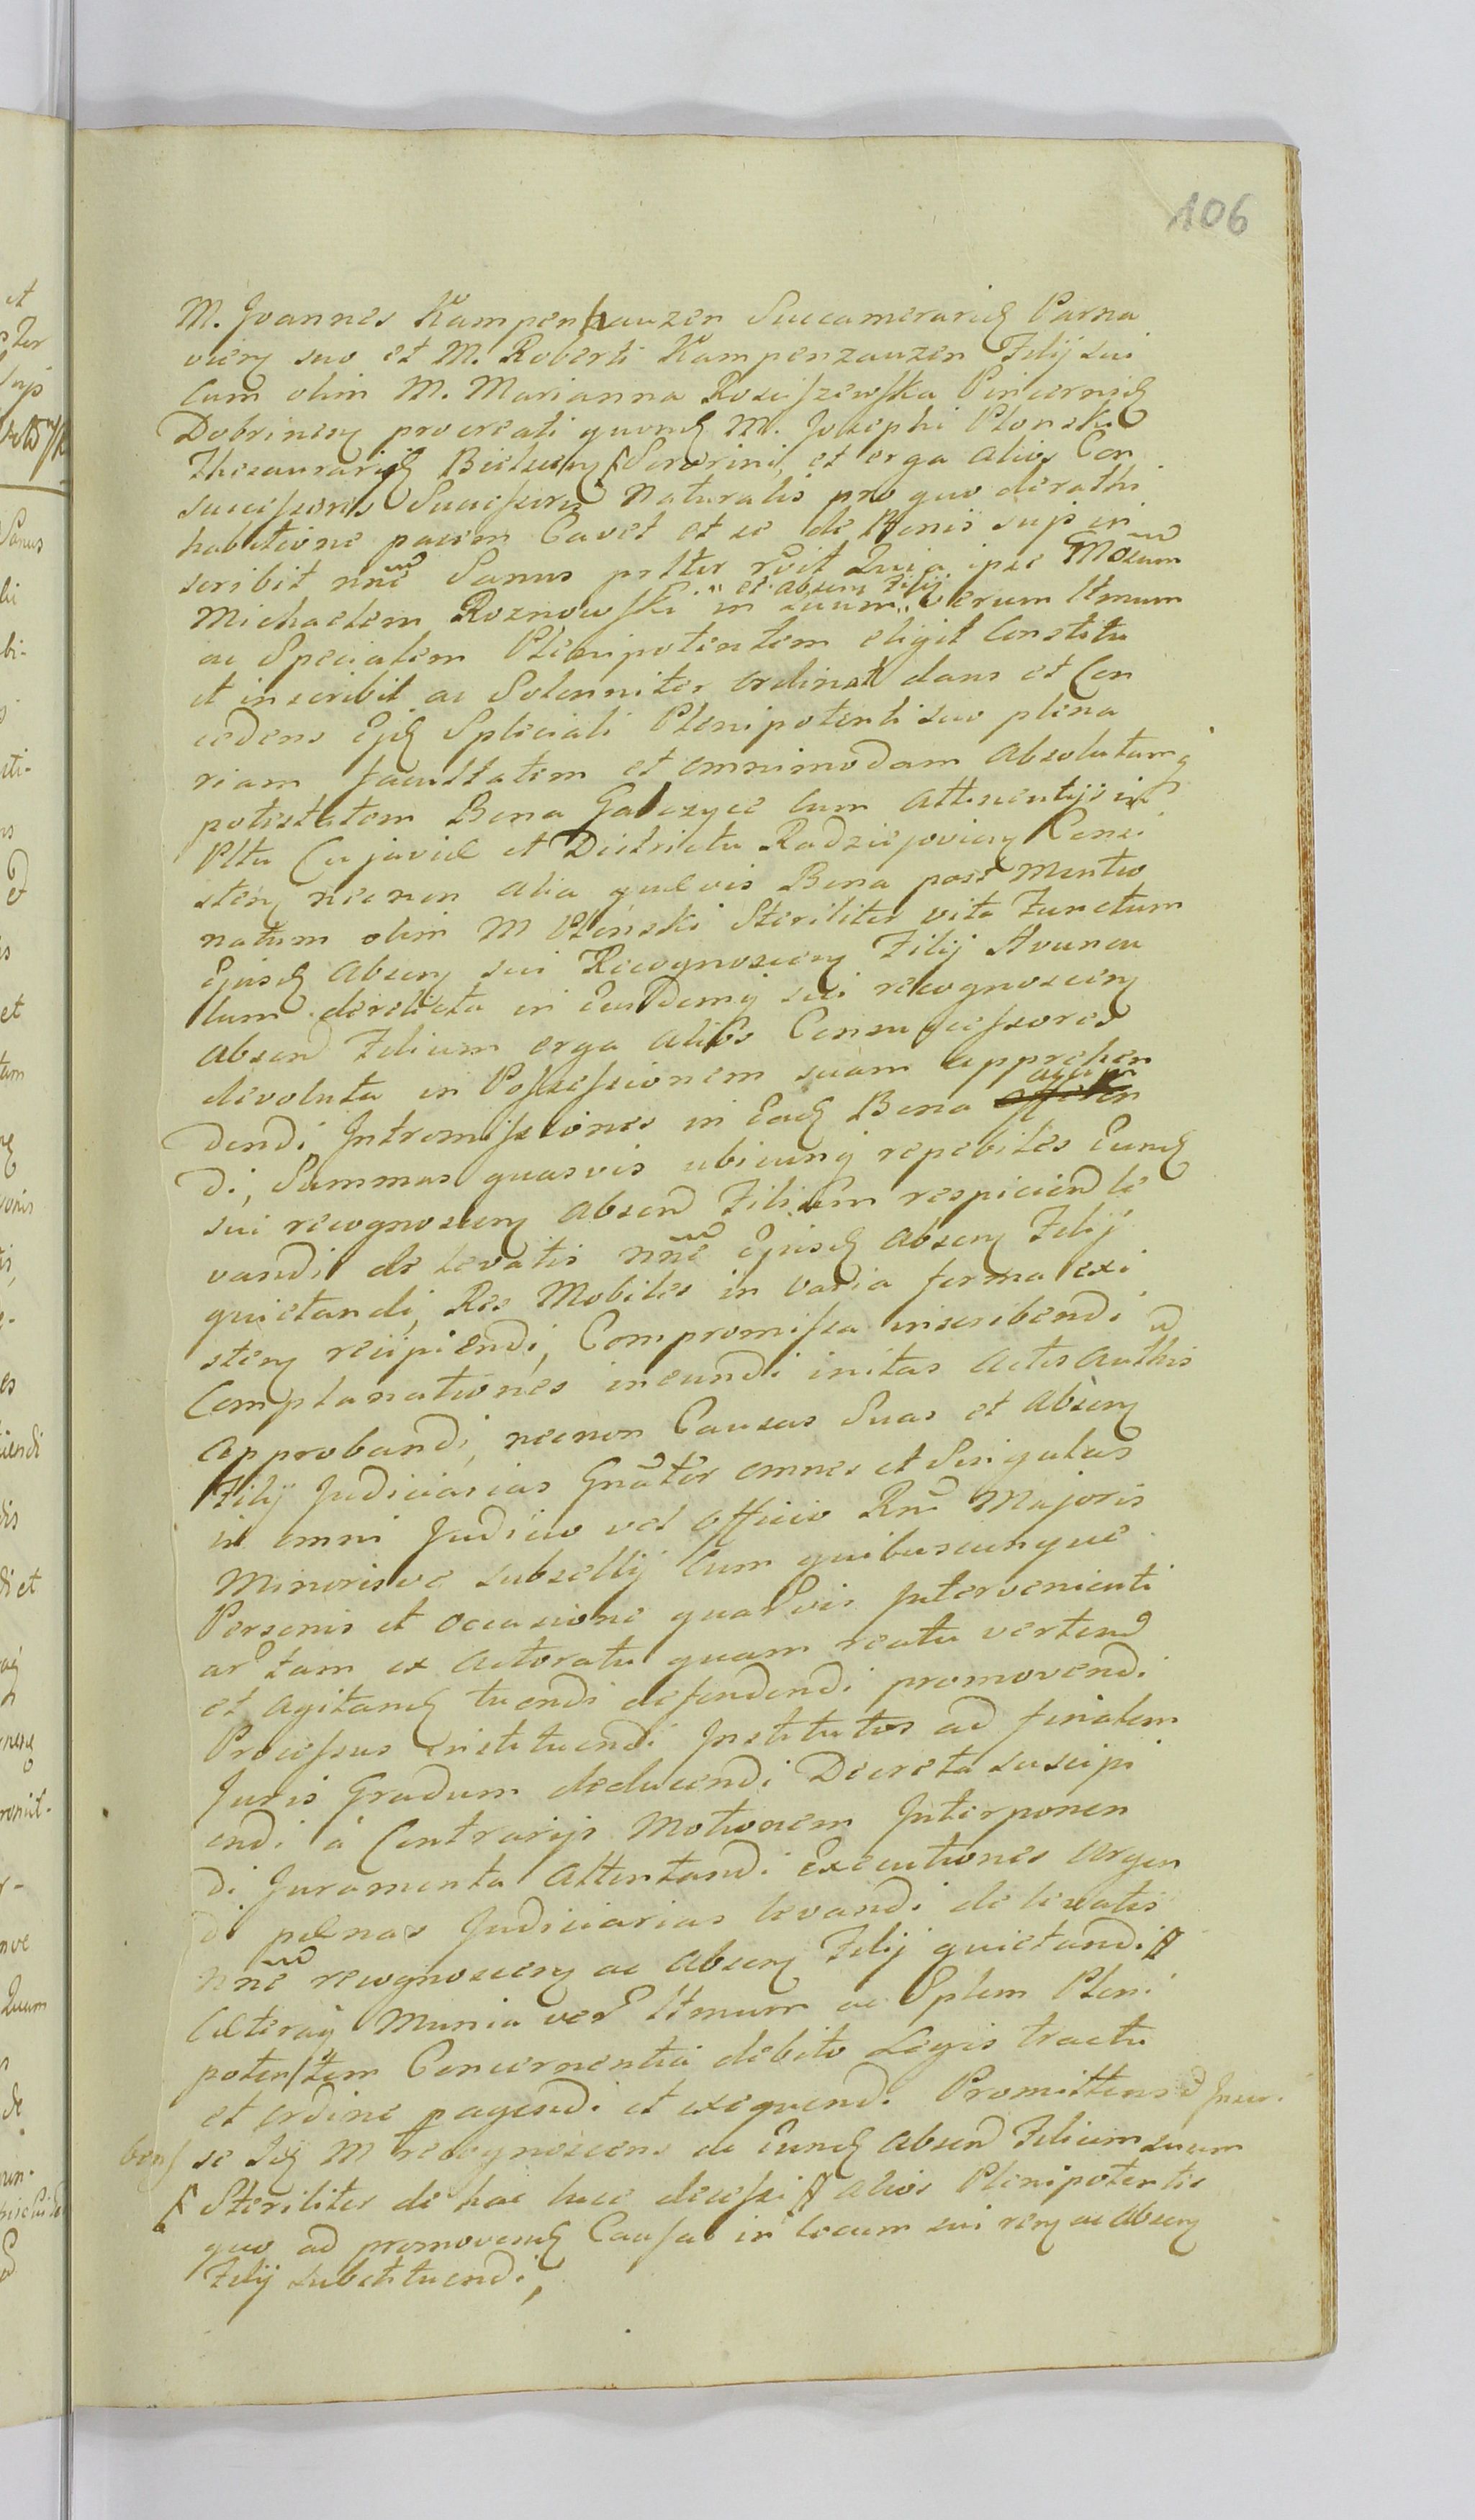 106
M. Joannes Kampenhauzen Succamerarię Parna
vieñ suo et M. Roberti Kampenzauzen Filij sui
cum olim M. Marianna Rosciszewska Pincernię
Dobrineñ procreati quonđ M. Josephi Plonski
Thesaurarię Bielsceñ Sororini, et erga alios Con
succissores Successoris naturalis pro quo de rathi
habitione pacem Cavet et se de Bonis sup in
scribit nñe Sanus pstter rvit Quia ipse Mđsum
Michaelem Roznowski in suum " et absen Filij " verum ltmum
ac Specialem Plenipotentem eligit Constitu
it inscribit ac Solenniter ordinat dans et Con
cedens Ejđ Speciali Plenipotenti suo plena
riam facultatem et omnimodam absolutamq
potestatem Bona Galczyce cum attinentijs in
Pltu Cujaviæ et Districtu Radziejovieñ Consi
steñ necnon alia quævis Bona post Mentio
natum olim M Plonski Steriliter vita Functum
Ejusđ Abseñ sui Recognosceñ Filij Avuncu
lum derelicta in Eundemq sui recognosceñ
absend Filium erga alios Consuccessores
devoluta in Possessionem suam apprehen
dendi Intromissiones in Eađ Bona acci pien
di, Summas quasvis ubicunq repebiles Eunđ
sui recognosceñ absend Filium respiciend le
vandi de levatis nñe Ejusđ absen Filij
quietandi, Res Mobiles in varia forma exi
steñ reiipiendi, Compromissa inscribendi
Complanationes ineundi initas actis authis
approbandi, necnon Causas Suas et abseñ
Filij Judiciarias Gñater omnes et Singulas
in omni Judicio vel officio Rni Majoris
Minorisve subsellij Cum quibuscunque
Personis et occasione quarvis Intervenienti
ar tam ex actoratu quam reatu vertend
et agitanđ tuendi defendendi promovendi
Processus instituendi Institutos ad finalem
Juris Gradum deducendi Decreta suscipi
endi à Contrarijs Motionem Interponen
di Juramenta attentandi Executiones urgen
di pœnas Judiciarias levandi de levatis
nñe recognosceñ ac absen Filij quietandi
Cæteraq Munia ver ltmum ac Splem Pleni
potentem Concernentia debito Legis tractu
et ordine pagendi et exequendi Promittens d Inscri
bens se Idđ M recognoscens ac Eunđ absend Filium suum
Steriliter de hac luce decessi alios Plenipotentes
quo ad promovenđ Causas in locum sui reñ ac abseñ
Filij substituendi,